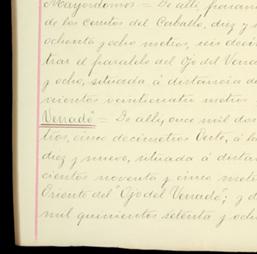 Mayordomos = De allí, pasan
de los cerritos del Caballo, diez y
ochenta y ocho metros, seis decí
trar el paralelo del Ojo del Vena
y ocho, situada á distancia de
cientos veinticuatro metros
Venado" = De allí, once mil
tros, cinco decímetros Oeste, á
diez y nueve, situada á distan
cientos noventa y cinco met
Oriente del "Ojo del Venado"; y d
mil quinientos setenta y och